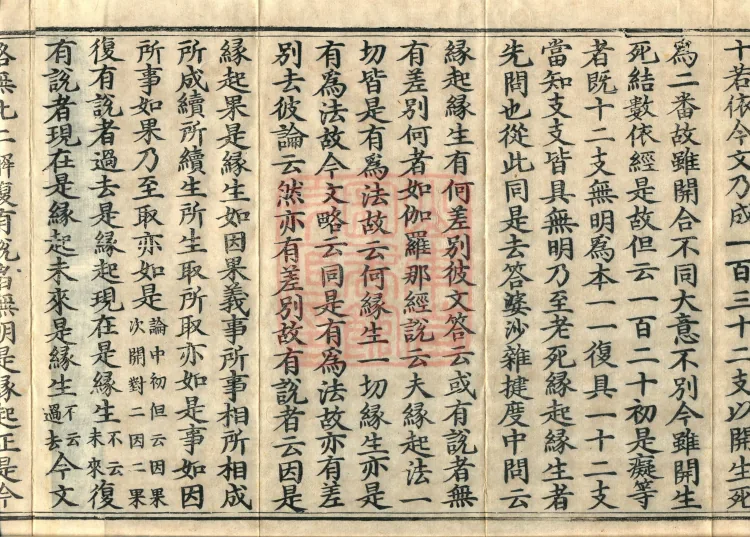 十若依今文乃成一百三十二支以開生死
爲二番故雖開合不同大意不別今雖開生
死結數依經是故但云一百二十初是癡等
者既十二支無明爲本一一復具一十二支
當知支支皆具無明乃至老死緣起緣生者
先問也從此同是去答婆沙雜揵度中問云
緣起緣生有何差別彼文答云或有說者無
有差別何者如伽羅那經說云夫緣起法一
切皆是有爲法故云何緣生一切緣生亦是
有爲法故今文略云同是有爲法故亦有差
別去彼論云然亦有差別故有說者云因是
緣起果是緣生如因果義事所事相所相成
所成續所續生所生取所取亦如是事如因
所事如果乃至取亦如是論中初但云因果次開對二因二果
復有說者過去是緣起現在是緣生不云未來復
有說者現在是緣起未來是緣生不云過去今文
各無此二解復有說名無明是緣起正是今